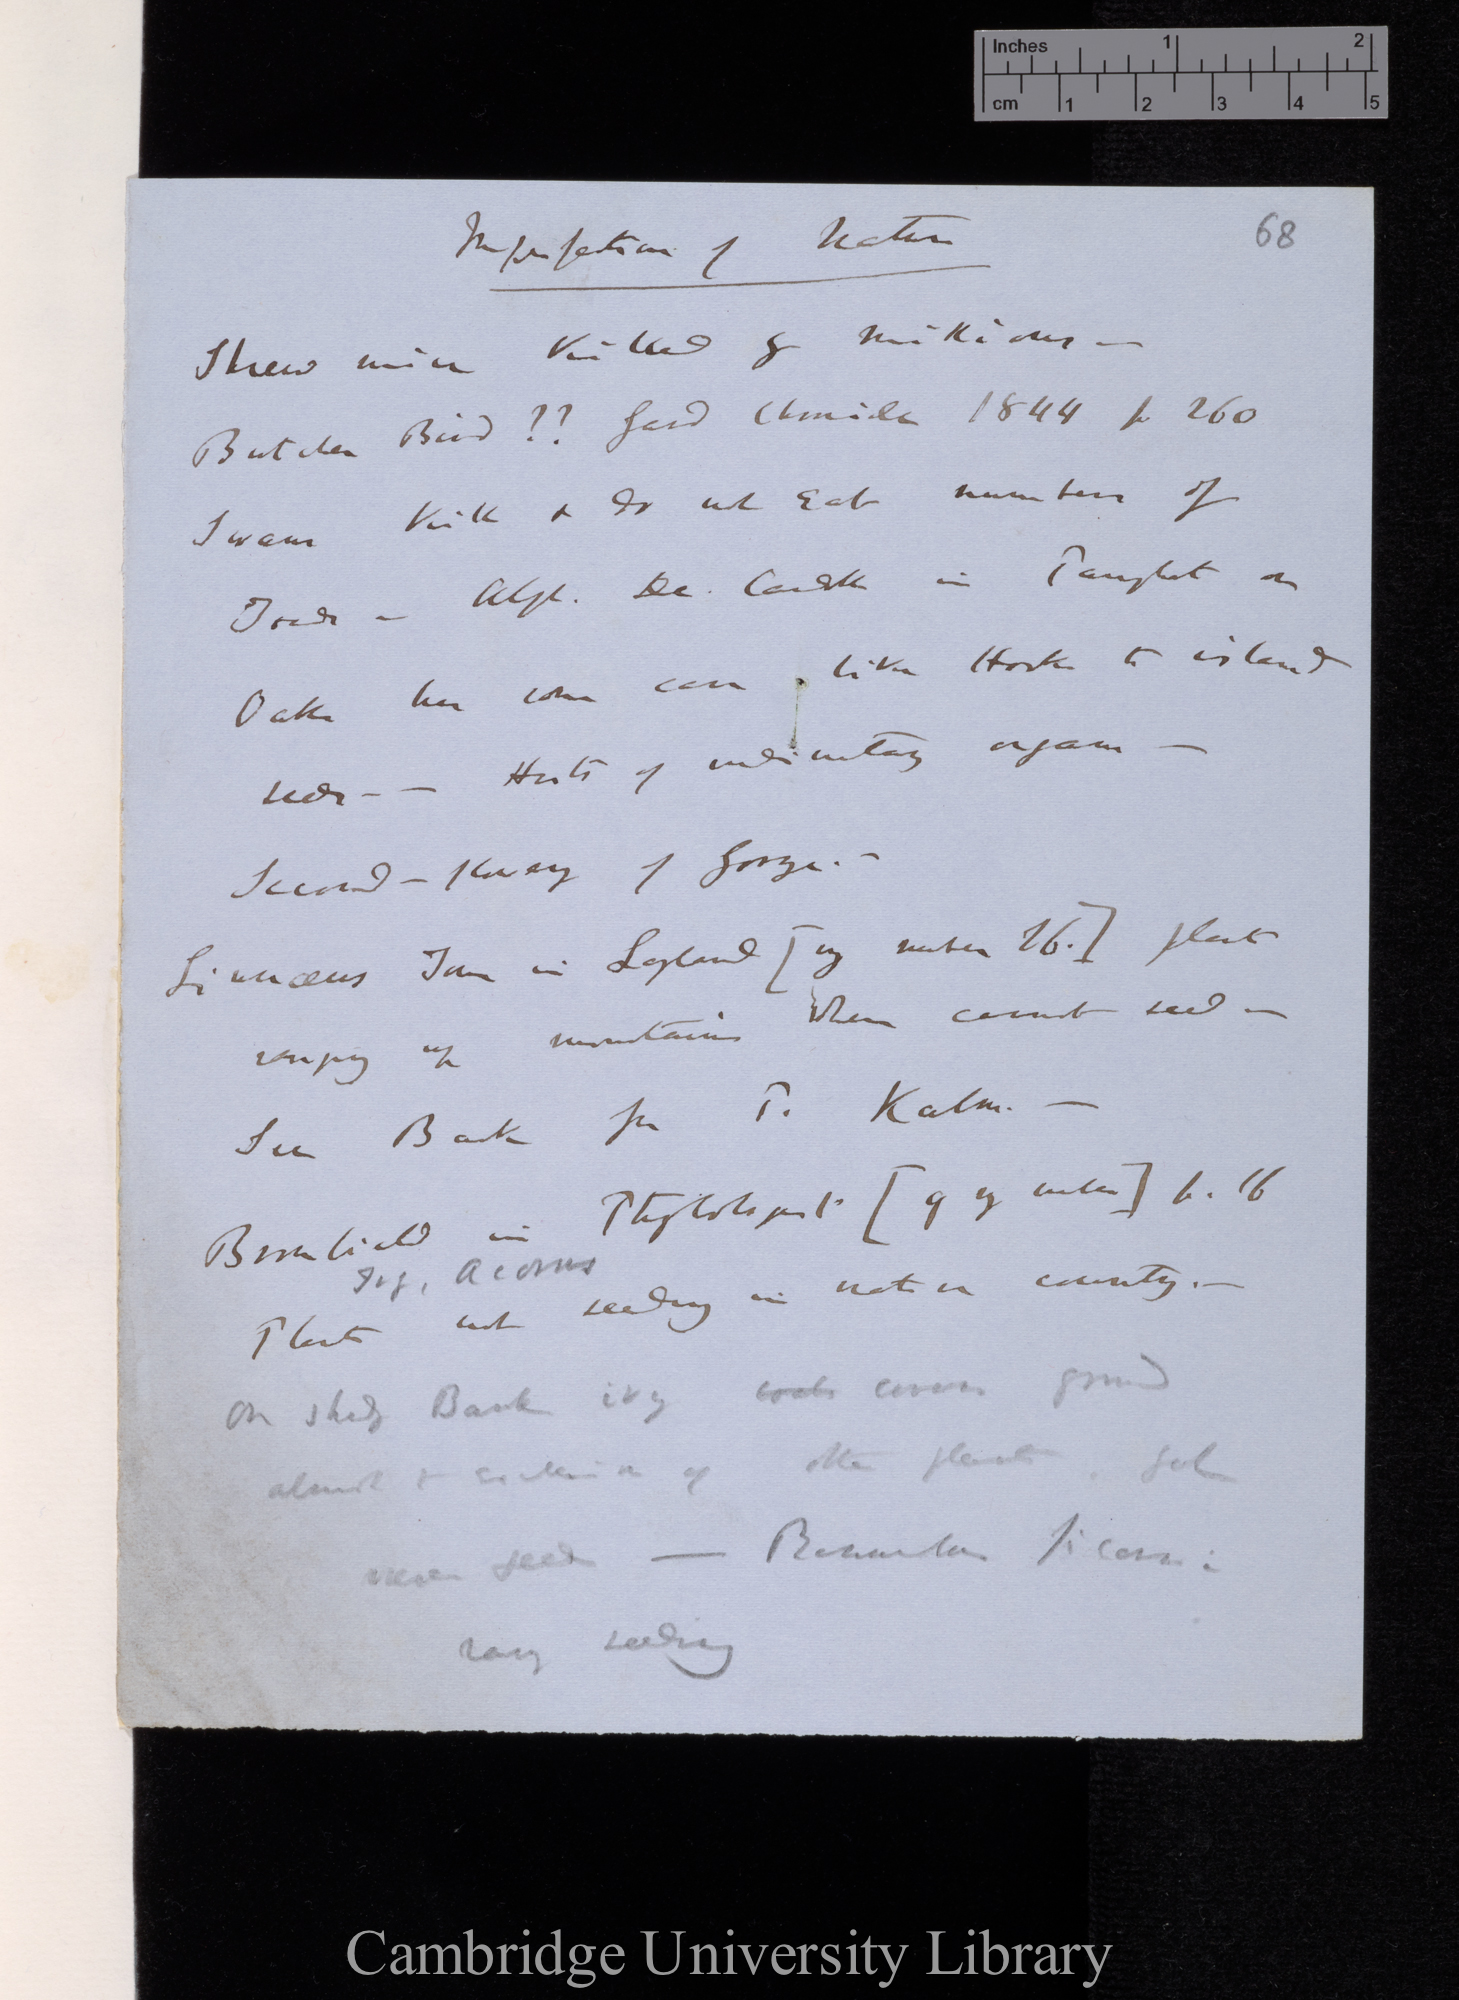 Inches 1 2
cm 1 2 3 4 5
68
Imperfection of Nature
Shrew mice killed by millions —
Butcher Bird ?? Gard Chronicle 1844 p 260
Swans kill & do not eat numbers of
Toads — Alph. De. Candolle in Pamphlet on
Oaks has some case like Hooker to island
seeds — — Hosts of rudimentary organs —
Second-flowering of Gorse. —
Linnæus Tour in Lapland [my number 26.] plants
ranging up mountains where cannot seed —
See Back for P. Kalm. —
Bromfield in Phytologist [q my number] p. 16
Fig, Acorus
Plants not seeding in native country. —
On shady Bank ivy covers ground
almost to exclusion of other plants,
never seeds — Ranunculus ficaria
rarely seeding
Cambridge University Library